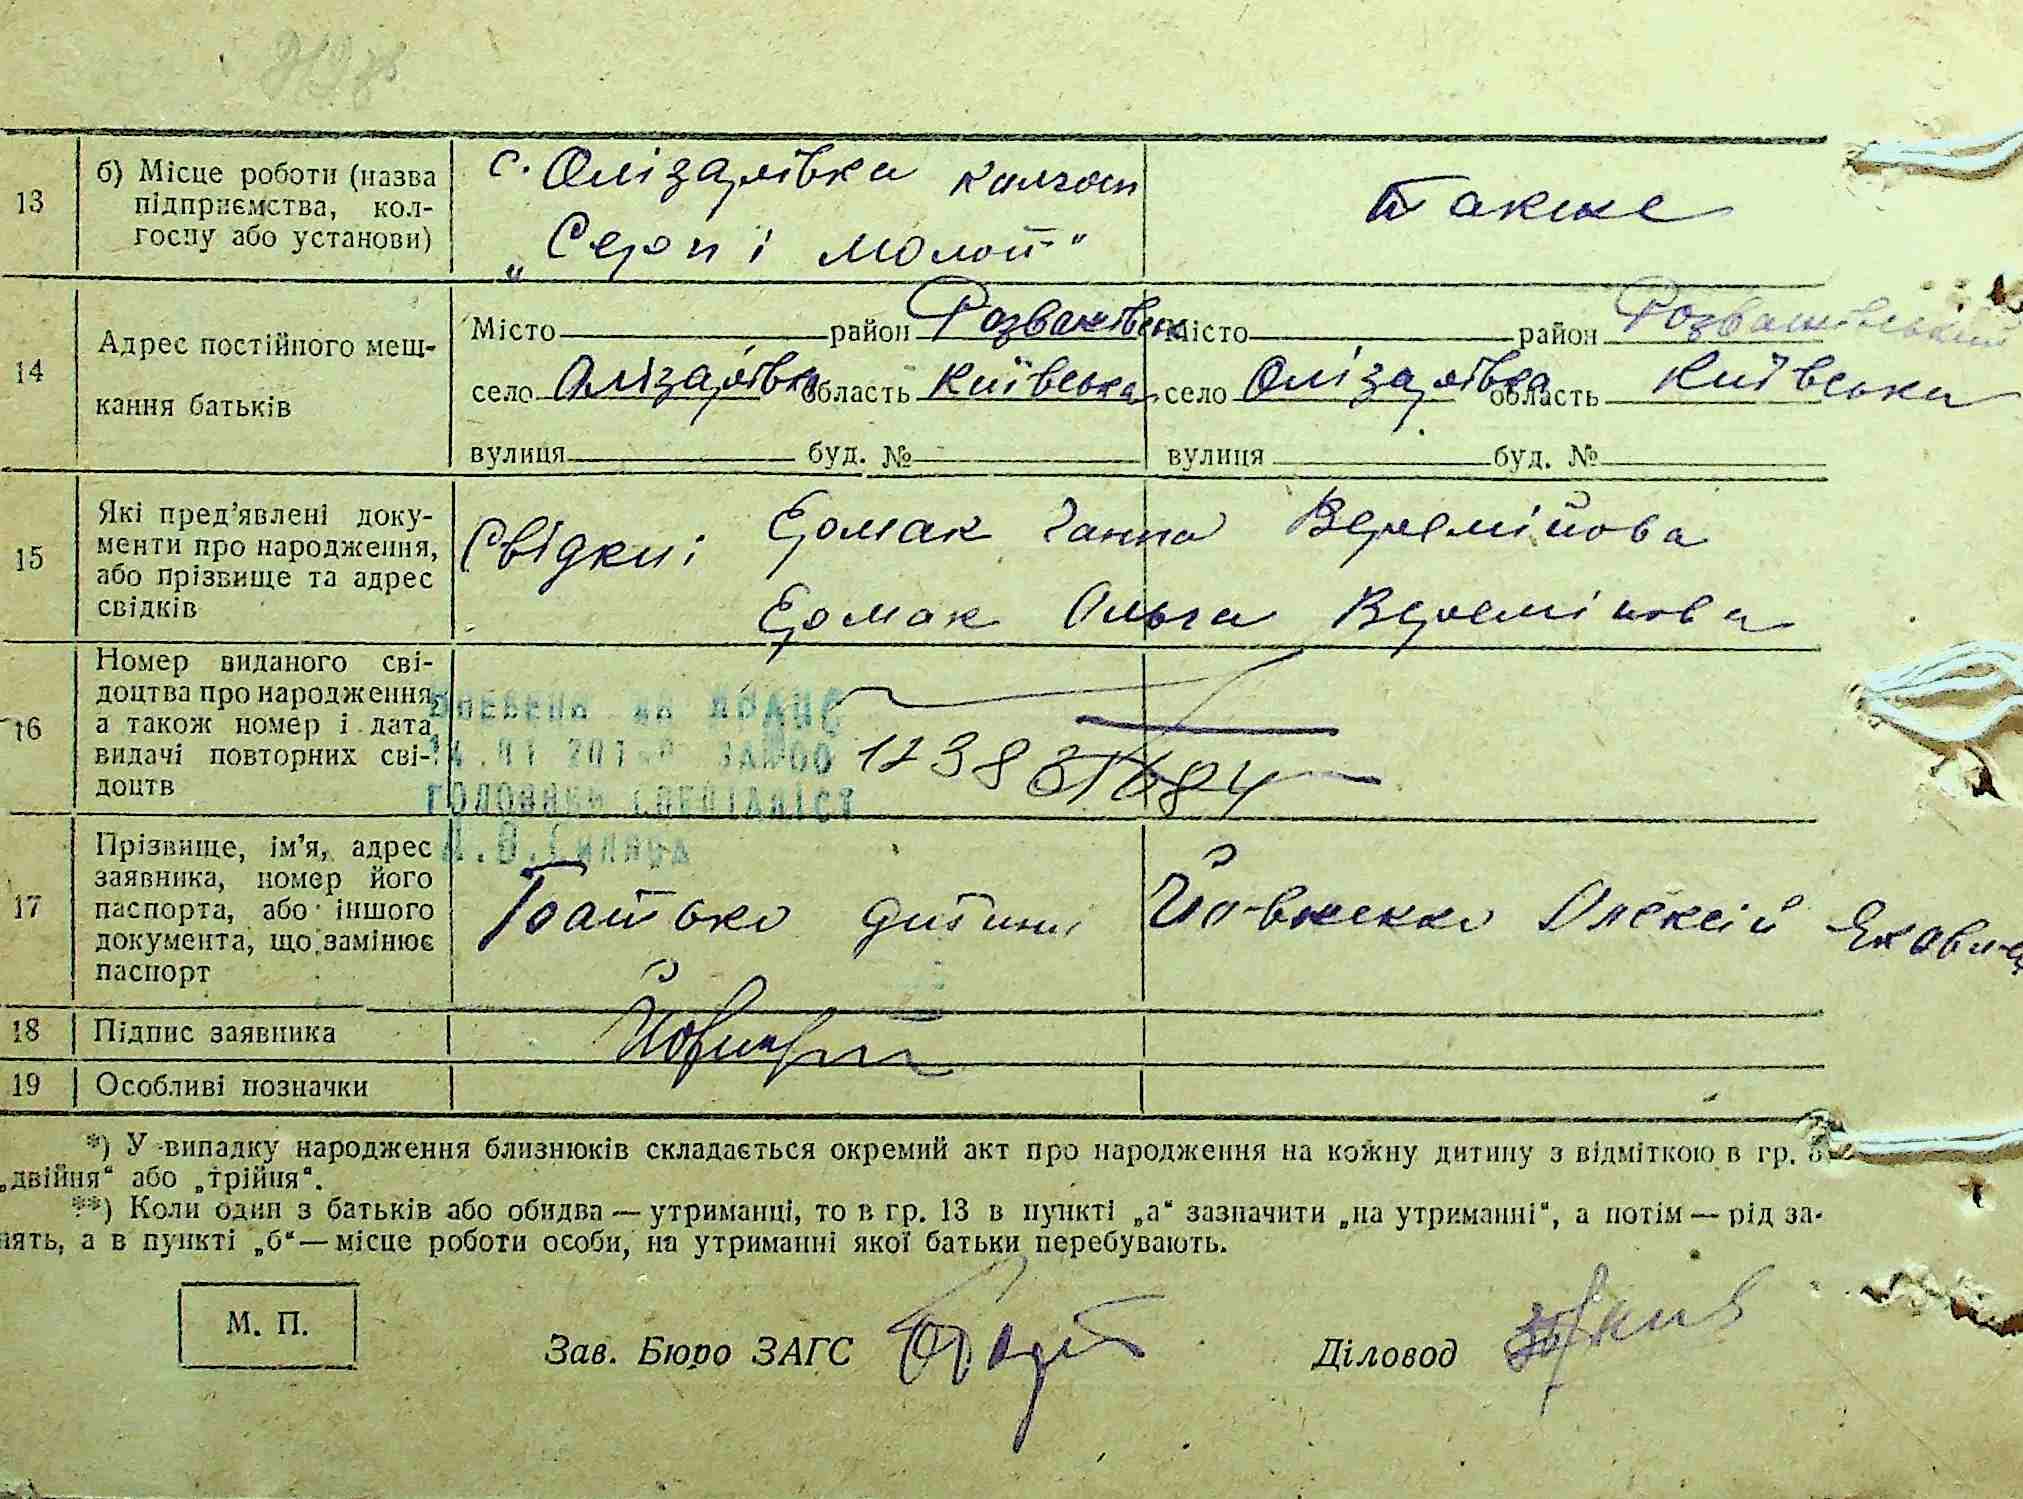 13
б) Місце роботи (назва
підприємства, кол-
госпу або установи)
с. Олізарівка колгосп
„Серп і молот"
также
14
Адрес постійного меш-
кання батьків
Місто район Розважівськ
село Олізарівка область Київська
вулиця буд. №
Місто район Розважівський
село Олізарівка область Київська
вулиця буд. №
15
Які пред'явлені доку-
менти про народження,
або прізвище та адрес
свідків
Свідки: Ермак Ганна Веремійова
Ермак Ольга Веремійова
16
Номер виданого сві-
доцтва про народження,
а також номер і дата
видачі повторних сві-
доцтв
на
головний спеціаліст
17
Прізвище, ім'я, адрес
заявника, номер його
паспорта, або іншого
документа, що замінює
паспорт
Батько дитини Йовженко Олексій Якович
18
Підпис заявника
19
Особливі позначки
*) У випадку народження близнюків складається окремий акт про народження на кожну дитину з відміткою в гр. 8
„двійня“ або „трійня“.
**) Коли один з батьків або обидва — утриманці, то в гр. 13 в пункті „а“ зазначити „на утриманні“, а потім — рід за-
нять, а в пункті „б“ — місце роботи особи, на утриманні якої батьки перебувають.
М. П.
Зав. Бюро ЗАГС
Діловод